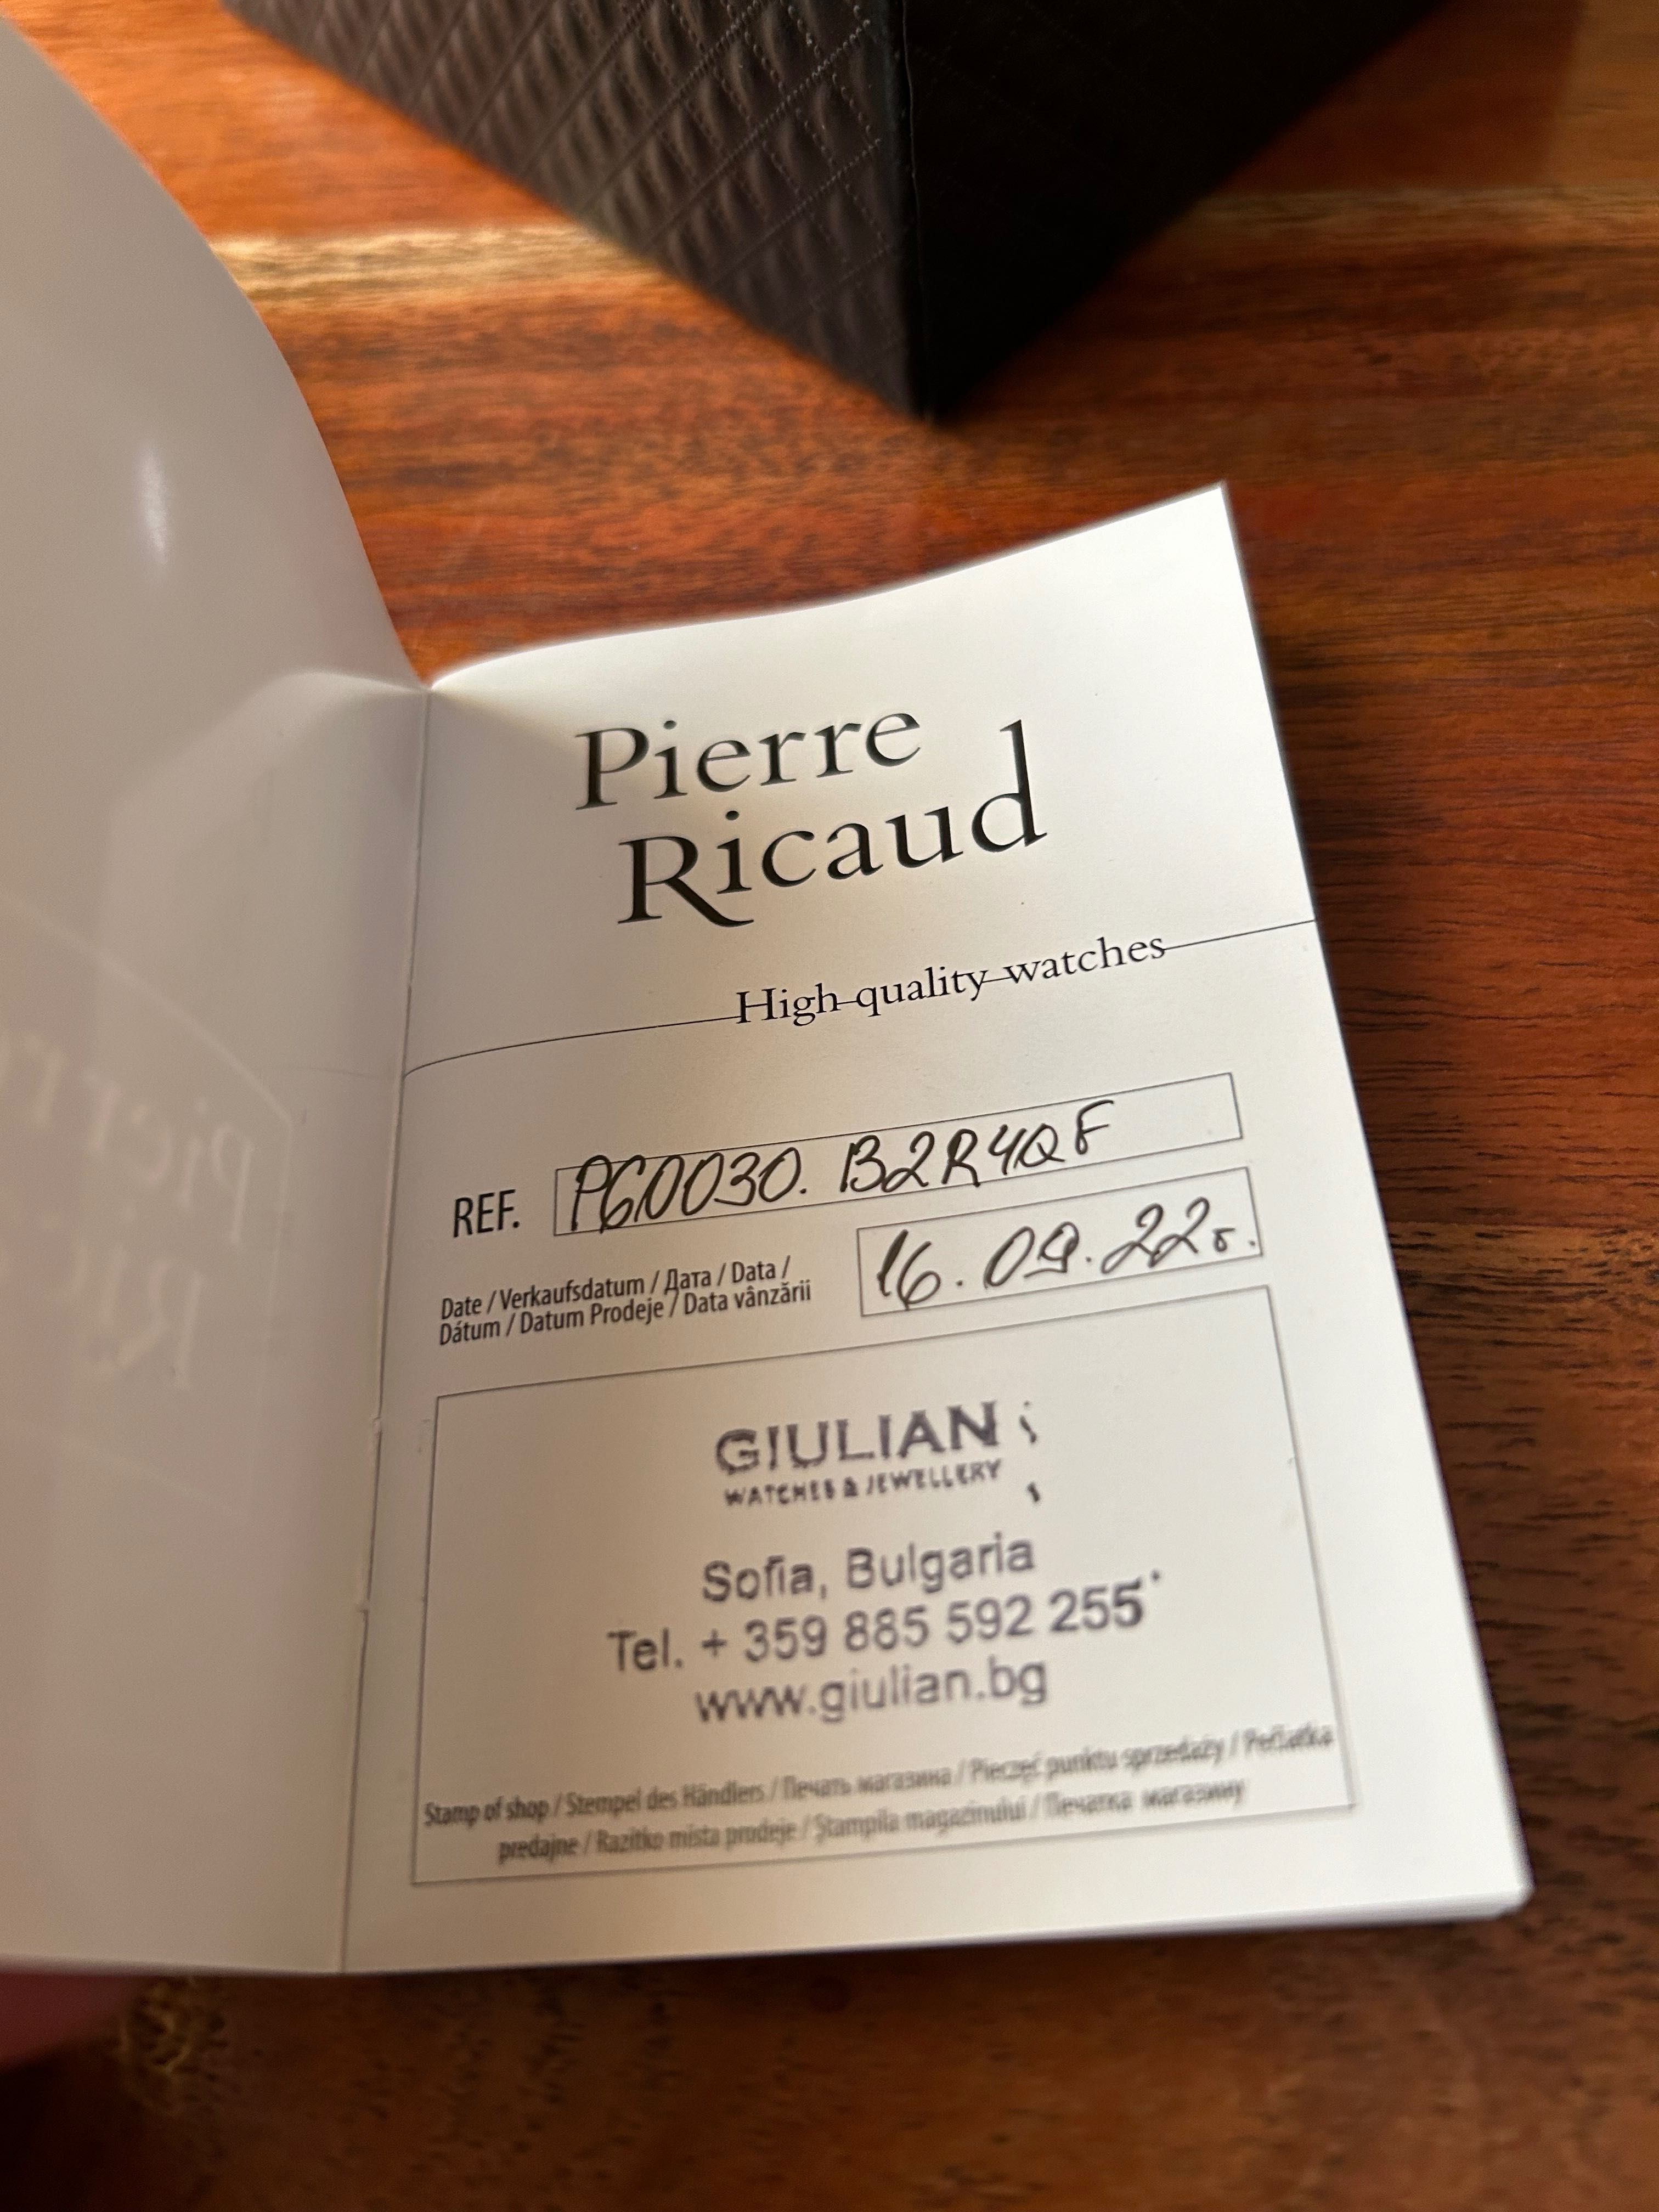 Pierre
Ricaud
High quality watches
REF. P60030. B2R4QF
Date / Verkaufsdatum / Дата / Data /
Dátum / Datum Prodeje / Data vânzării
16.09.22г.
GIULIAN
WATCHES & JEWELLERY
Sofia, Bulgaria
Tel. + 359 885 592 255
www.giulian.bg
Stamp of shop / Stempel des Händlers / Печать магазина / Pieczęć punktu sprzedaży / Pečiatka
predajne / Razítko místa prodeje / Ștampila magazinului / Печатка магазину